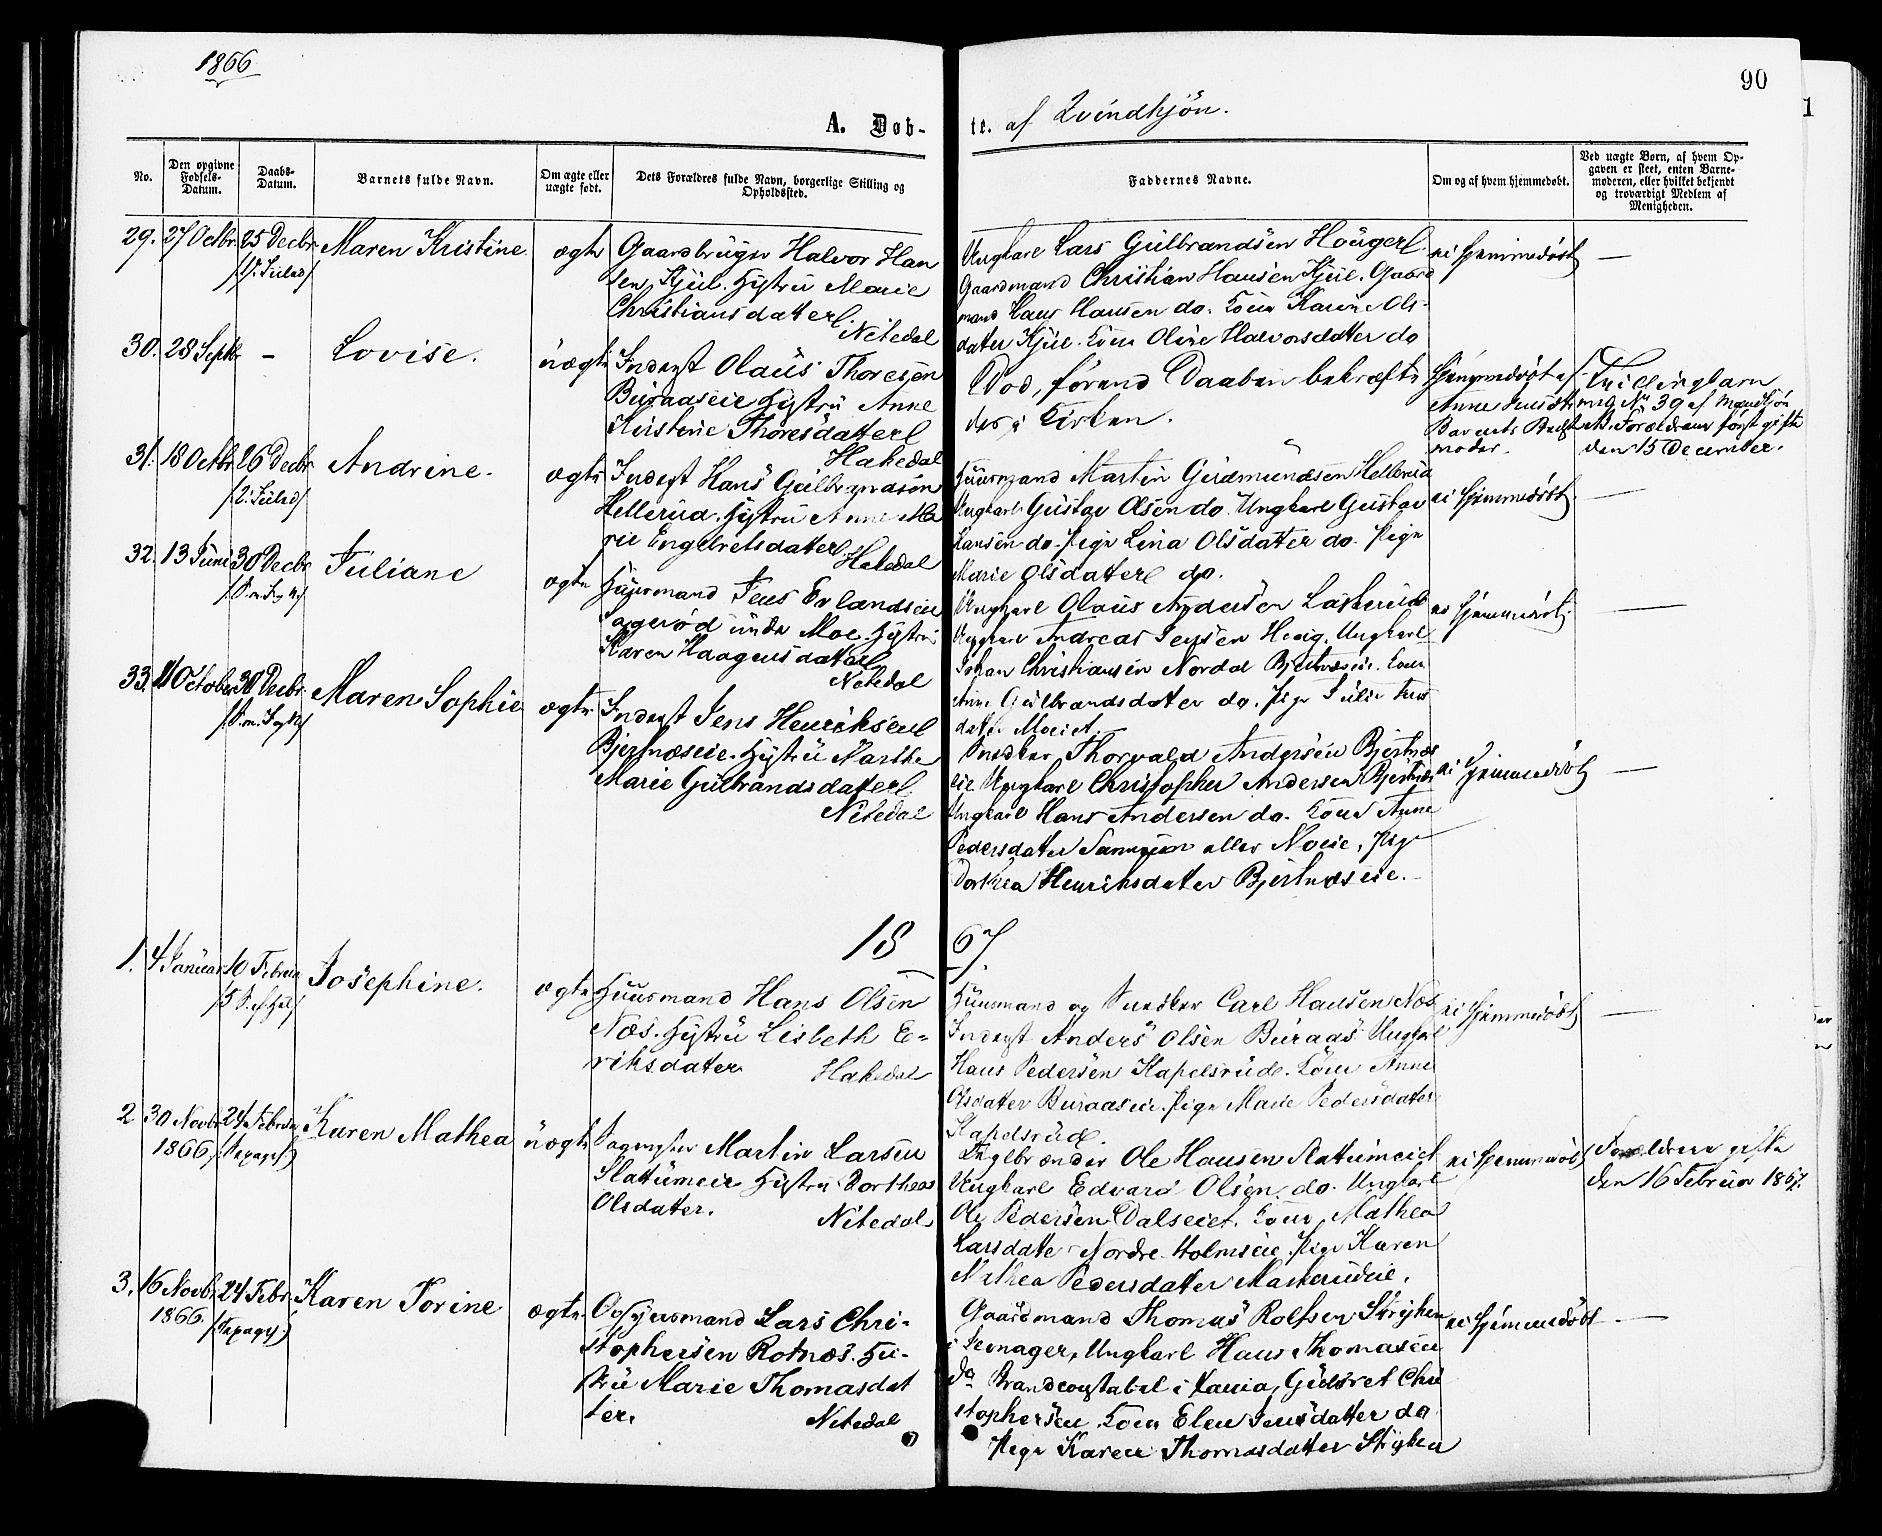 1866
90
A. Døb-
te. af Kvindkjön.
No.
Den opgivne
Fødsels-
Datum.
Daabs-
Datum.
Barnets fulde Navn.
Om ægte eller
uægte født.
Dets Forældres fulde Navn, borgerlige Stilling og
Opholdssted.
Faddernes Navne.
Om og af hvem hjemmedøbt.
Ved uægte Børn, af hvem Op-
gaven er skeet, enten Barne-
moderen, eller hvilket bekjendt
og troværdigt Medlem af
Menigheden.
29. 27 Octbr. 25 Decbr. Maren Kristine ægte Gaardbruger Halvor Han
/1. Juledag/ sen Kjul. Hustru Marie
Christiansdatter
Nitedal
Ungkarl Lars Gulbrandsen Hougerl.
Gaardmand Christian Hansen Kjul. Gaard
mand Hans Hansen do. Kone Karine Ols-
datter Kjul. Kone Oline Halvorsdatter do
ei hjemmedøbt —
30. 28 Septbr. – Lovise. uægte Inderst Olaus Thoresen
Buraaseie Hustru Anne
Kirstine Thoresdatter
Hakedal
Død, førend Daaben bekræfte
des i Kirken.
hjemmedøbt af
Anne
Barnets Bedste
moder.
Tvillingbarn
med No 39 af Mandkjön
NB. Forældrene først gifte
den 15 December.
31. 18 Octbr. 26 Decbr. Andrine. ægte Inderst Hans Gulbrandsen
/2. Juledag/ Hellerud. Hustru Anne Ma
rie Engebretsdatter
Hakedal
Huusmand Martin Gudmundsen Hellerud
Ungkarl Gustav Olsen do. Ungkarl Gustav
Hansen do. Pige Lina Olsdatter do. Pige
Marie Olsdatter do.
ei hjemmedøbt. —
32. 13 Juni 30 Decbr. Juliane ægte Huusmand Jens Erlandsen
Sagerød under Moe. Hustru
Karen Haagensdatter
Nitedal
Ungkarl Olaus Andersen
Ungkarl Andreas Jensen Ungkarl
Johan Christiansen Nordal Kone
Anne Gulbrandsdatter do. Pige Julie
datter Moeiet.
ei hjemmedøbt. —
33. October 30 Decbr. Maren Sophie ægte Inderst Jens Henriksen
Bjertnæseie. Hustru Marthe
Marie Gulbrandsdatter.
Nitedal
Snedker Thorvald Andersen Bjertnæs
eie Ungkarl Christopher Andersen Bjertnæs
Ungkarl Hans Andersen do. Kone Anne
Pedersdatter eller Moeie, Pige
Dorthea Henriksdatter Bjertnæseie.
ei hjemmedøbt —
18 67.
1. 4 Januar 10 Februar Josephine. ægte Huusmand Hans Olsen
Næs. Hustru Lisbeth E-
riksdatter
Hakedal
Huusmand og Snedker Carl Hansen Næs
Inderst Anders Olsen Buraas Ungkarl
Hans Pedersen Kapelsrud. Kone Anne
Olsdatter Buraaseie. Pige Marie Pedersdatter
Kapelsrud.
ei hjemmedøbt —
2 30 Novbr. 24 Februar Karen Mathea uægte Martin Larsen
1866 /Sexages/ Slattumeie Hustru Dorthea
Olsdatter.
Nitedal
Teglbrænder Ole Hansen Slatumeiet
Ungkarl Edvard Olsen do. Ungkarl
Ole Pedersen Dalseiet. Kone Mathea
Larsdatter Nordre Holmseie. Pige Karen
Mathea Pedersdatter
ei hjemmedøbt
Forældrene gifte
den 16 Februar 1867.
3. 16 Novbr. 24 Febr. Karen Torine ægte Opsynsmand Lars Chri-
1866. /Sexages/ stophersen Rotnæs. Hu-
stru Marie Thomasdat
ter.
Nitedal
Gaardmand Thomas Rolfsen Stryken
i Ungkarl Hans Thomasen
do i Gudbret Chri
stophersen Kone Elen Jensdatter do
Pige Karen Thomasdatter Stryken
ei hjemmedøbt —